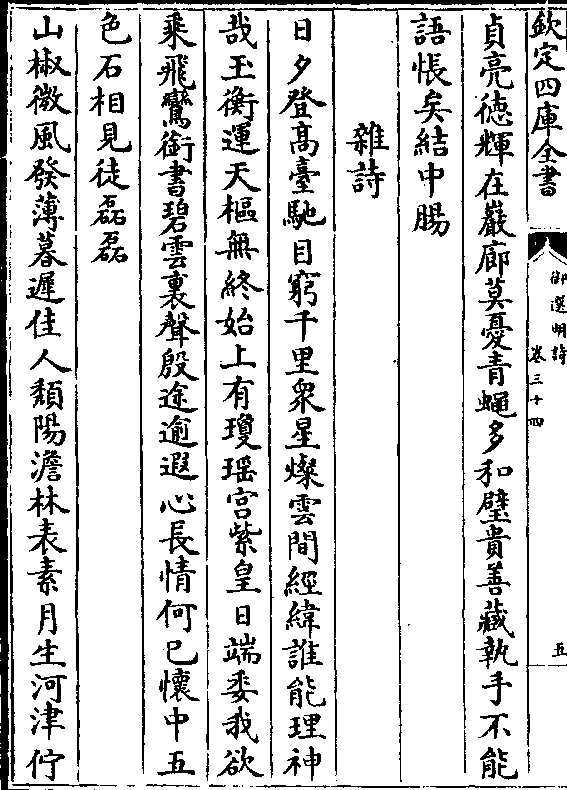 欽定四庫全書
御選明詩
卷三十四
五
貞亮徳輝在巖廊莫憂青蠅多和璧貴善藏執手不能
語悵矣結中腸
雜詩
日夕登髙臺馳目窮千里衆星燦雲間經緯誰能理神
哉玉衡運天樞無終始上有瓊瑶宫紫皇日端委我欲
乘飛鸞銜書碧雲裏聲殷途逾遐心長情何已懷中五
色石相見徒磊磊
山椒微風發薄暮遲佳人頽陽澹林表素月生河津佇